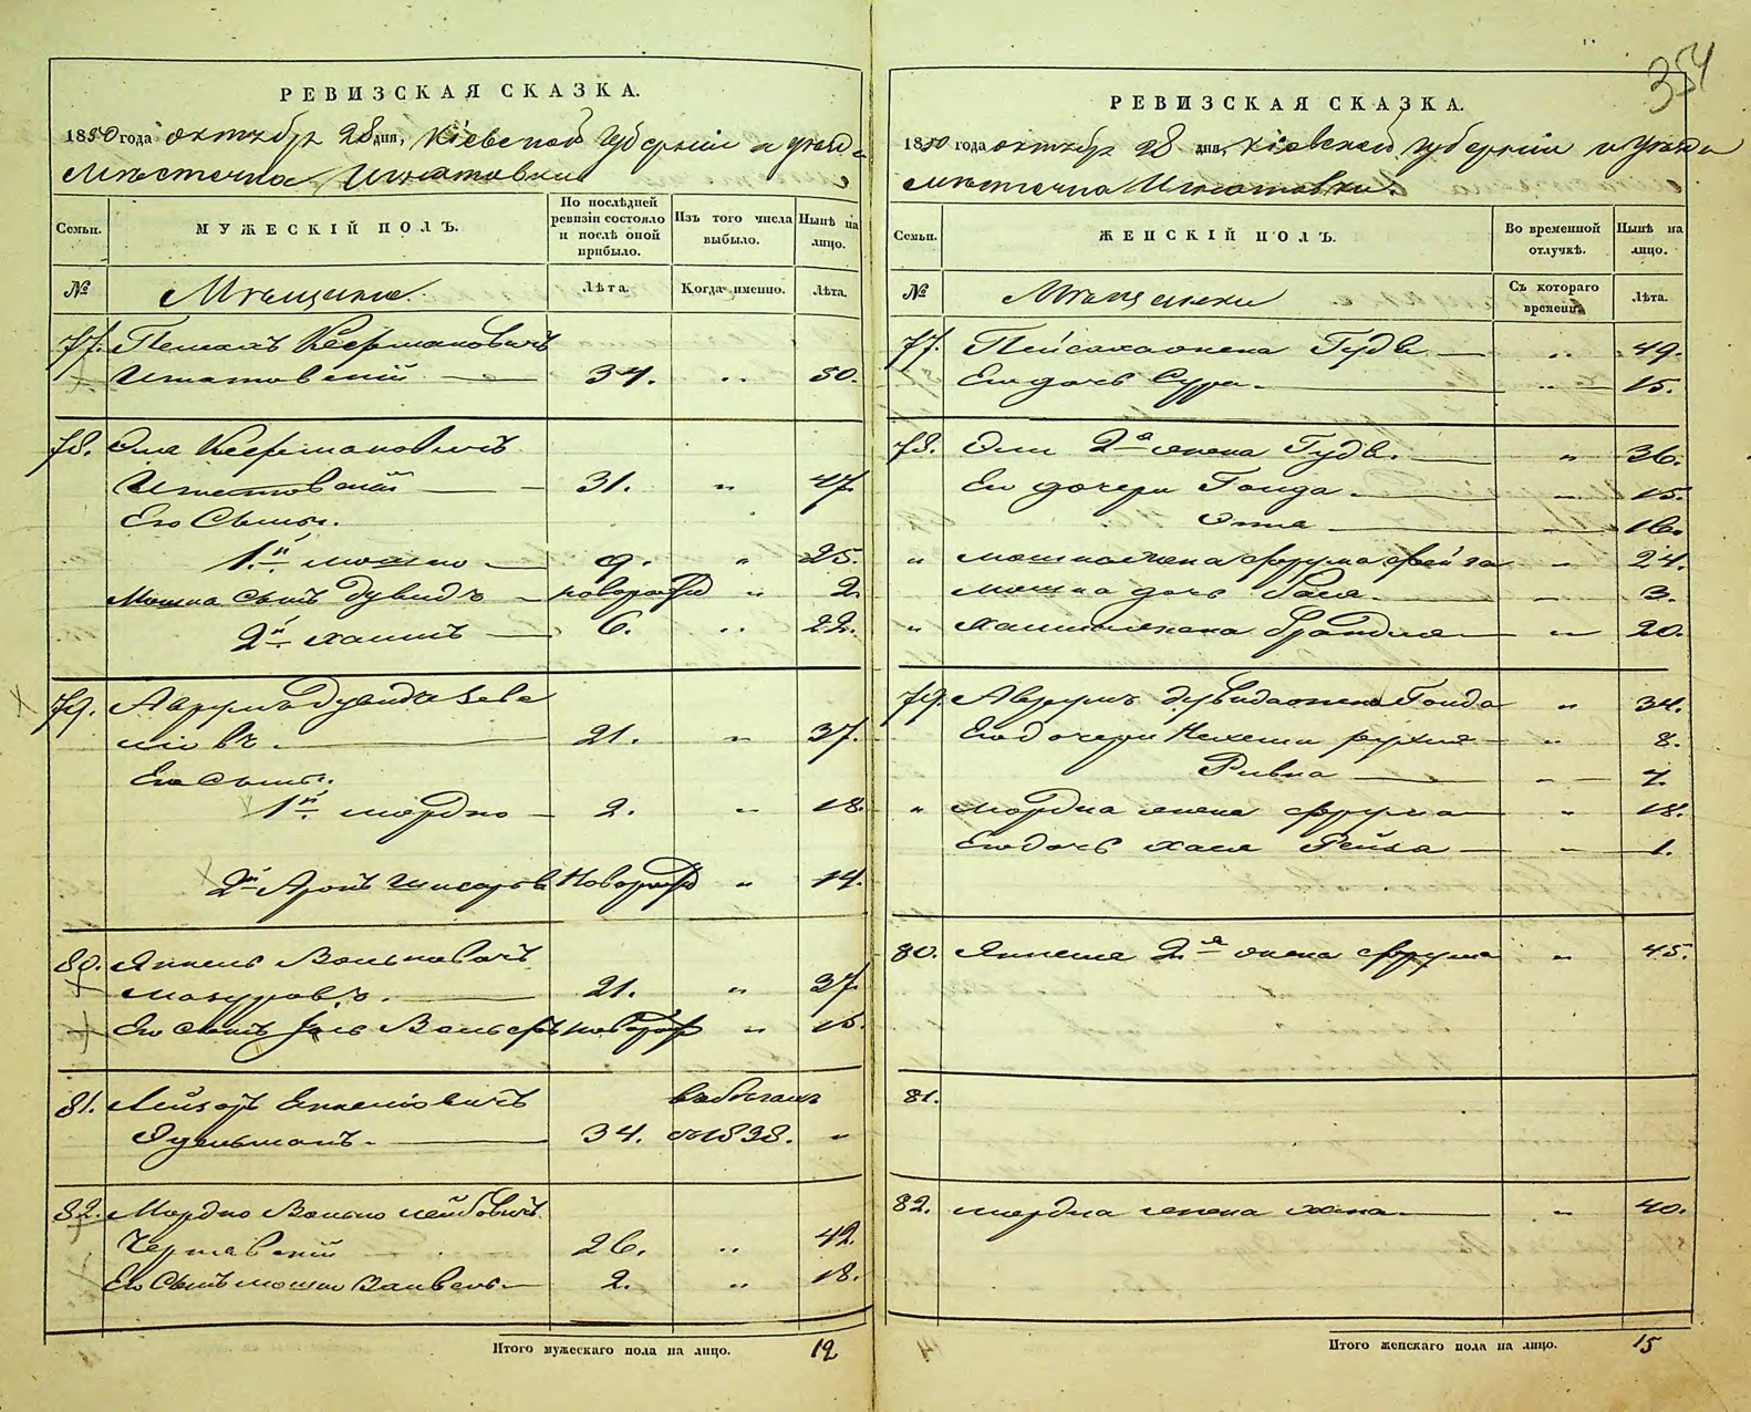 354
РЕВИЗСКАЯ СКАЗКА.
1850 года октября 28 дня, Кіевской Губерніи и уезда
Мѣстечка Игнатовки
Семьи.
МУЖЕСКІЙ ПОЛЪ.
По послѣдней ревизіи состояло и послѣ оной прибыло.
Изъ того числа выбыло.
Нынѣ на лицо.
№
Мѣщане.
Лѣта.
Когда именно.
Лѣта.
77.
Игнатовскій 34. „ 50.
78. Эля
Игнатовскій 31. „ 47.
Его Сыны.
1й Мошко 9. „ 25.
Мошка сынъ Дувидъ новорожд „ 2.
2й Хаимъ 6. „ 22.
79. Аврумъ Дувидъ
21. „ 37.
Его сыны:
1й Мордко 2. „ 18.
2й Аронъ новорожд „ 14.
80. Янкель Волькович
Мазуровъ. 21. „ 37
Его сынъ новорож „ 15.
81. Лейзоръ Янкеліовичъ
34. съ 1838. „
82. Мордко Волько Лейбовичъ
26. „ 42.
Его Сынъ Мошко 2. „ 18.
Итого мужескаго пола на лицо. 12
РЕВИЗСКАЯ СКАЗКА.
1850 года октября 28 дня, Кіевской Губерніи и уезда
Мѣстечка Игнатовки.
Семьи.
ЖЕНСКІЙ ПОЛЪ.
Во временной отлучкѣ.
Нынѣ на лицо.
№
Мѣщанки
Съ котораго времени.
Лѣта.
77. Пейсаха жена Гудя „ 49.
Его дочь Сура. „ 15.
78. Эли 2я жена Гудя. „ 36.
Его дочери Гольда. „ 15.
16.
„ Мошка жена Фрума Фейга „ 24.
Мошка дочь „ 3.
„ Хаима жена Брандля „ 20.
79. Аврумъ Дувида жена Гольда „ 34.
Его дочери Нехема Рухля „ 8.
Ривка „ 7.
„ Мордка жена Фрума „ 18.
Его дочь Хая Рейза „ 1.
80. Янкеля 2я жена Фрума „ 45.
81.
82. Мордка жена Хана „ 40.
Итого женскаго пола на лицо. 15